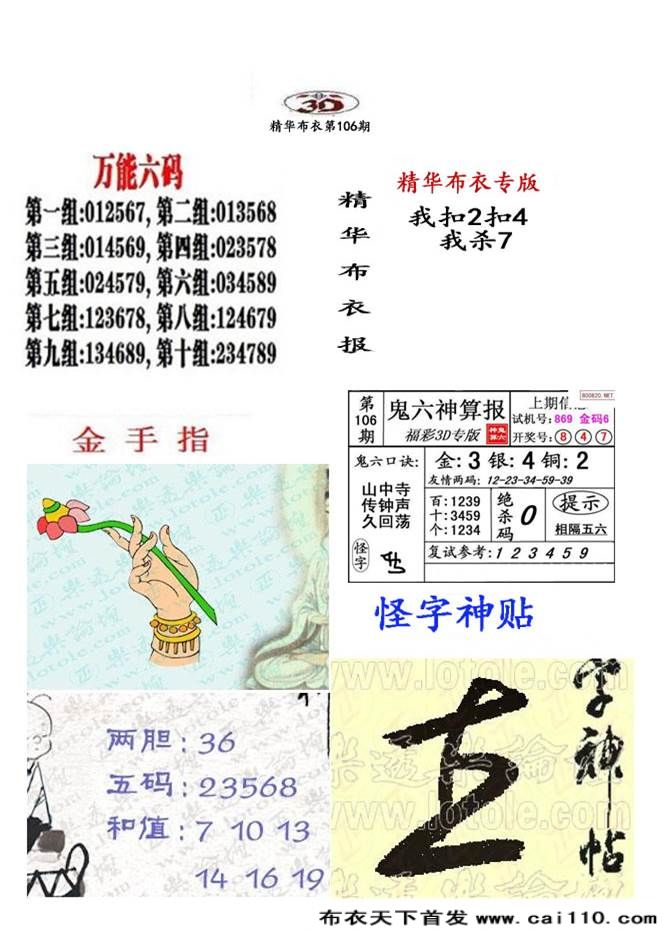 3D
精华布衣第106期
万能六码
第一组:012567,第二组:013568
第三组:014569,第四组:023578
第五组:024579,第六组:034589
第七组:123678,第八组:124679
第九组:134689,第十组:234789
精华布衣报
精华布衣专版
我扣2扣4
我杀7
金手指
第106期
鬼六神算报
福彩3D专版
神鬼算六
上期信息
800820.NET
试机号:869 金码6
开奖号:8 4 7
鬼六口诀:
山中寺
传钟声
久回荡
怪字
金:3 银:4 铜:2
友情两码: 12-23-34-59-39
百:1239
十:3459
个:1234
绝杀码 0
提示
相隔五六
复试参考:1 2 3 4 5 9
怪字神贴
两胆:36
五码:23568
和值:7 10 13
14 16 19
字神帖
www.lotole.com
布衣天下首发 www.cai110.com